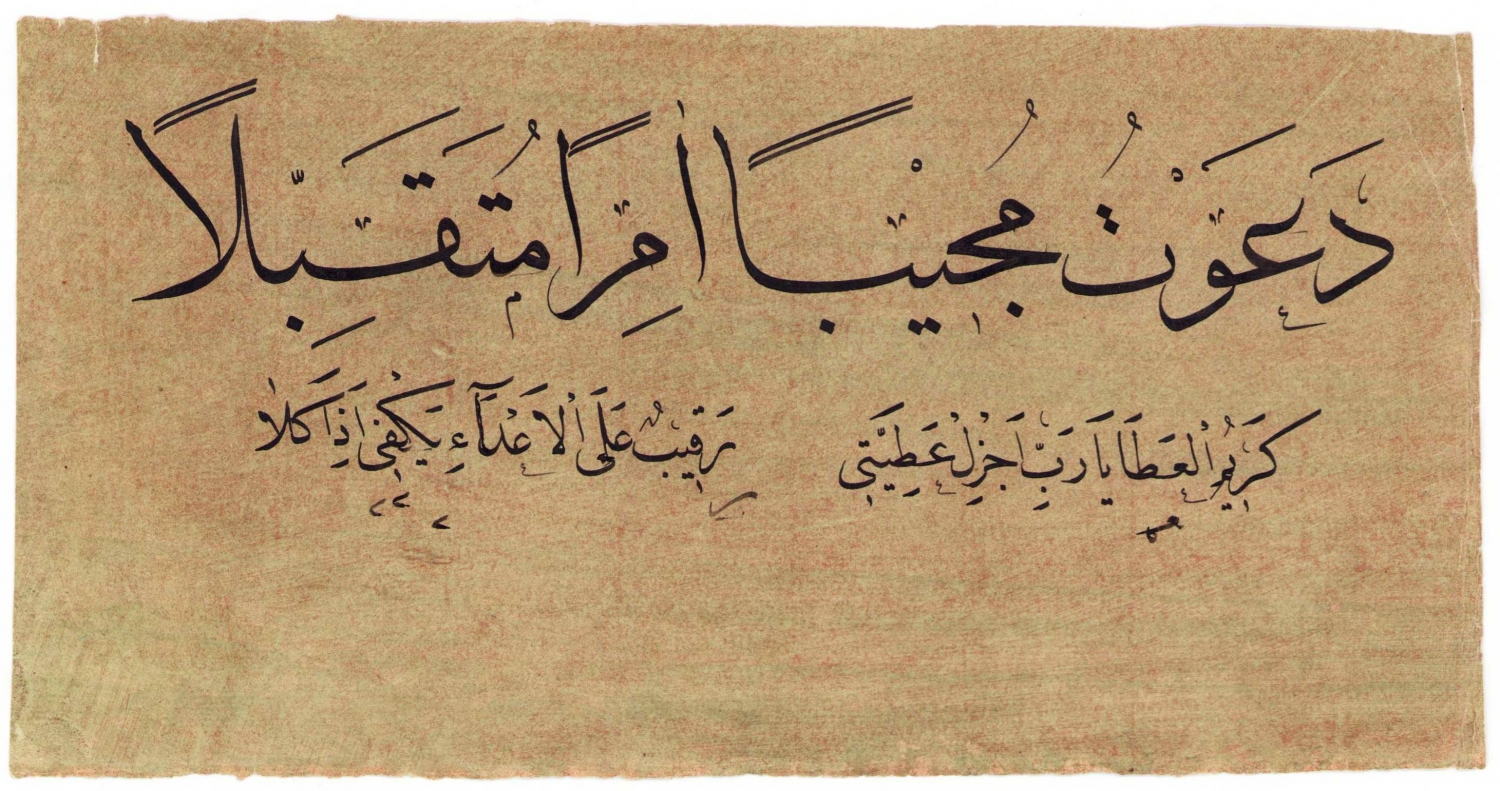 دَعَوْتُ مُجِيْبًا اٰمِرًا مُتَقَبِّلًا
كَرِيمُ الْعَطَا يَا رَبِّ اَجْزِلْ عَطِيَّتِي رَقِيبٌ عَلَى الْاَعْدَآءِ يَكْفِي اَذَا كَلَا